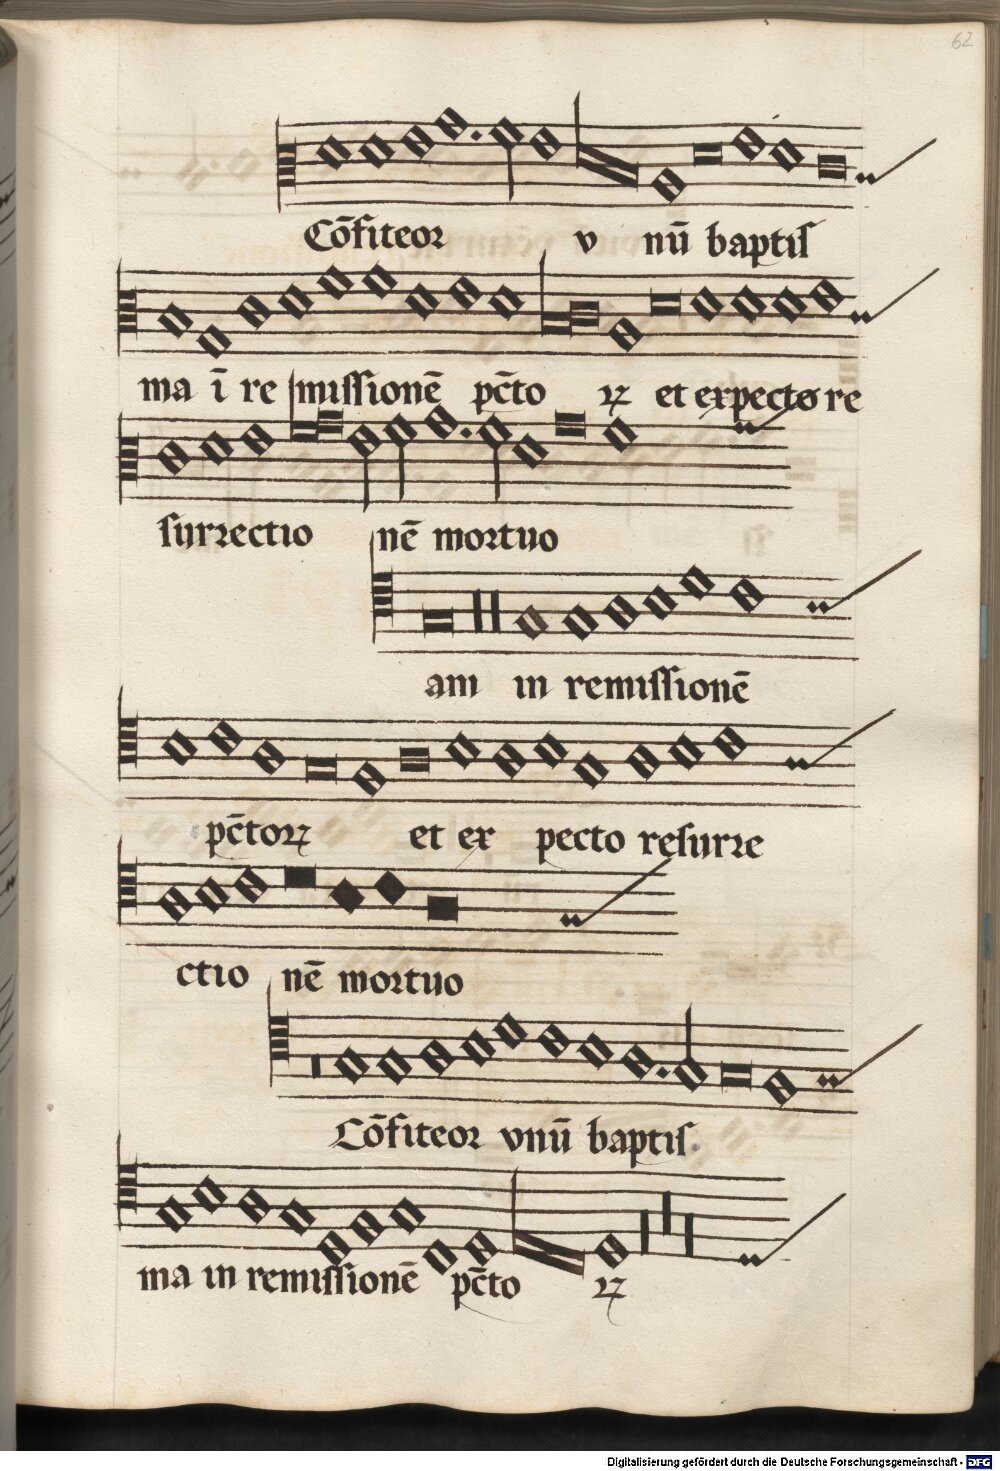 62
Cōfiteor v nū baptiſ
ma ī re miſſionē pc̄to ꝝ et expecto re
ſurrectio nē mortuo
am in remiſſionē
pc̄toꝝ et ex pecto reſurre
ctio nē mortuo
Cōfiteor vnū baptiſ
ma in remiſſionē pc̄to ꝝ
Digitalisierung gefördert durch die Deutsche Forschungsgemeinschaft - DFG